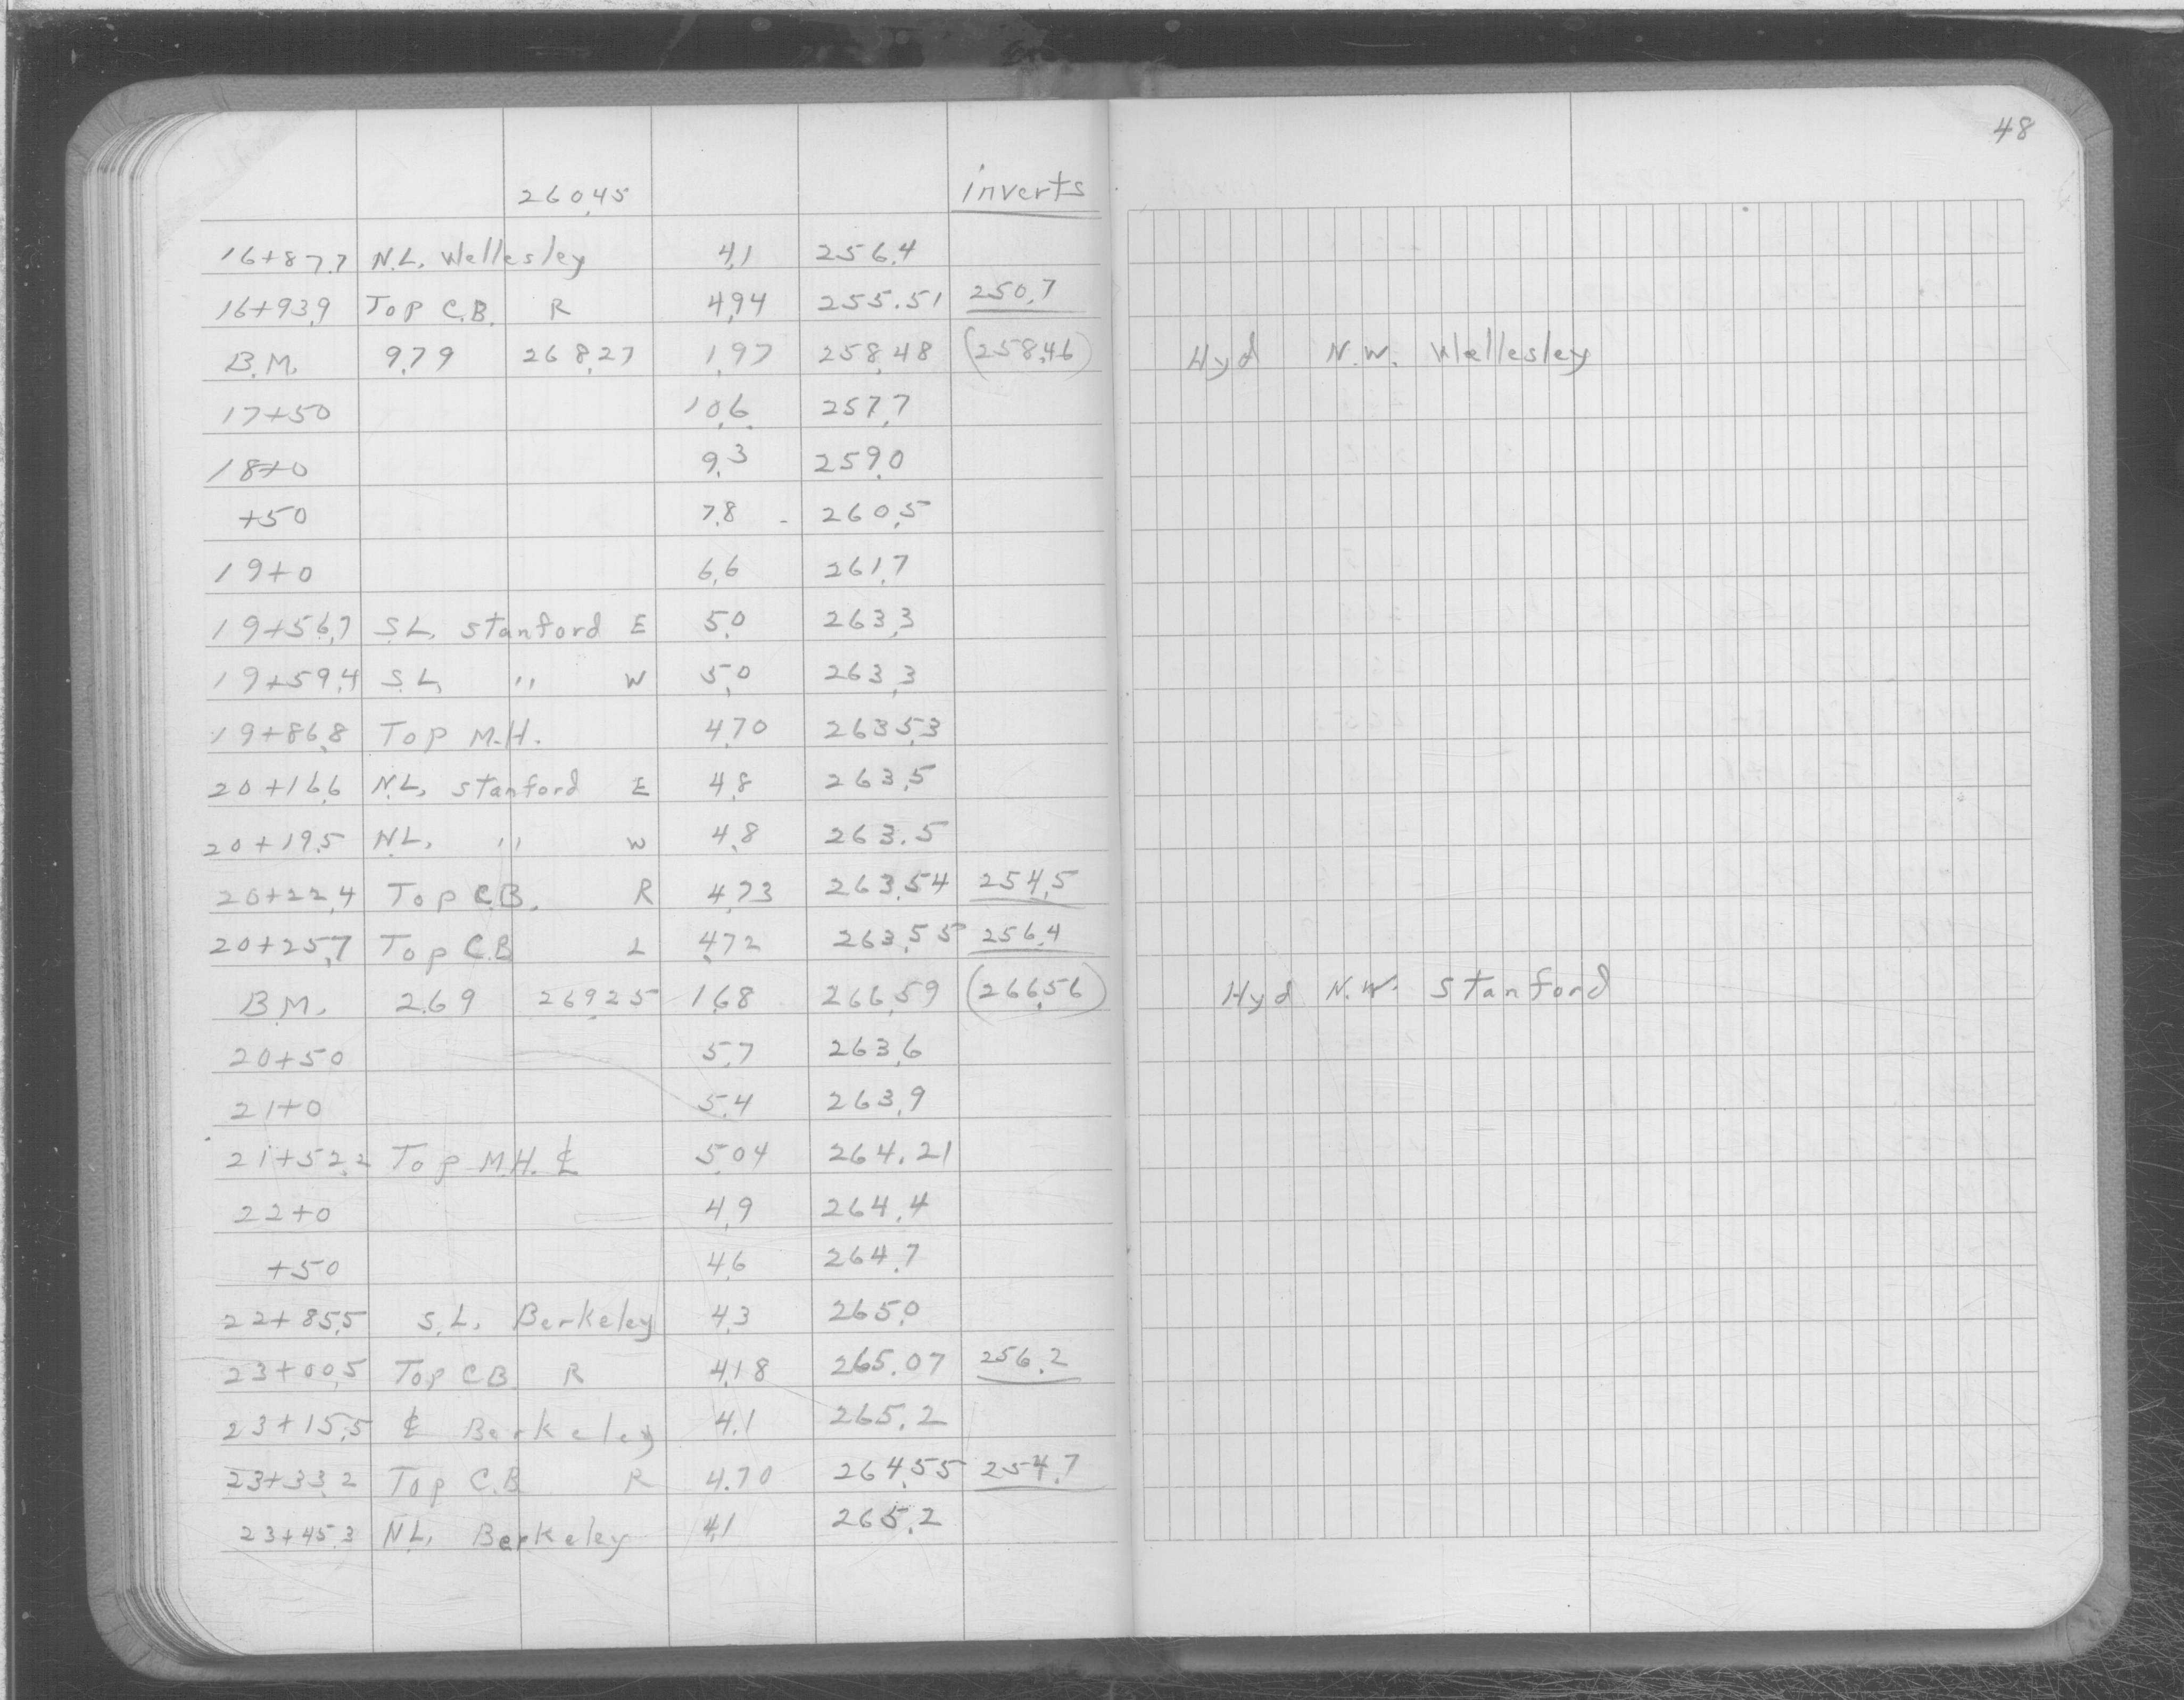 48
260.45 inverts
16+87.7 N.L. Wellesley 4.1 256.4
16+93.9 Top C.B. R 4.94 255.51 250.7
B.M. 9.79 268.27 1.97 258.48 (258.46) Hyd N.W. Wellesley
17+50 10.6 257.7
18+0 9.3 259.0
+50 7.8 - 260.5
19+0 6.6 261.7
19+56.7 S.L. Stanford E 5.0 263.3
19+59.4 S.L. " W 5.0 263.3
19+86.8 Top M.H. 4.70 263.53
20+16.6 N.L. Stanford E 4.8 263.5
20+19.5 N.L. " W 4.8 263.5
20+22.4 Top C.B. R 4.73 263.54 254.5
20+25.7 Top C.B L 4.72 263.55 256.4
B.M. 2.69 269.25 1.68 266.59 (266.56) Hyd N.W. Stanford
20+50 5.7 263.6
21+0 5.4 263.9
21+52.2 Top M.H. ℄ 5.04 264.21
22+0 4.9 264.4
+50 4.6 264.7
22+85.5 S.L. Berkeley 4.3 265.0
23+00.5 Top C.B. R 4.18 265.07 256.2
23+15.5 ℄ Berkeley 4.1 265.2
23+33.2 Top C.B R 4.70 264.55 254.7
23+45.3 N.L. Berkeley 4.1 265.2